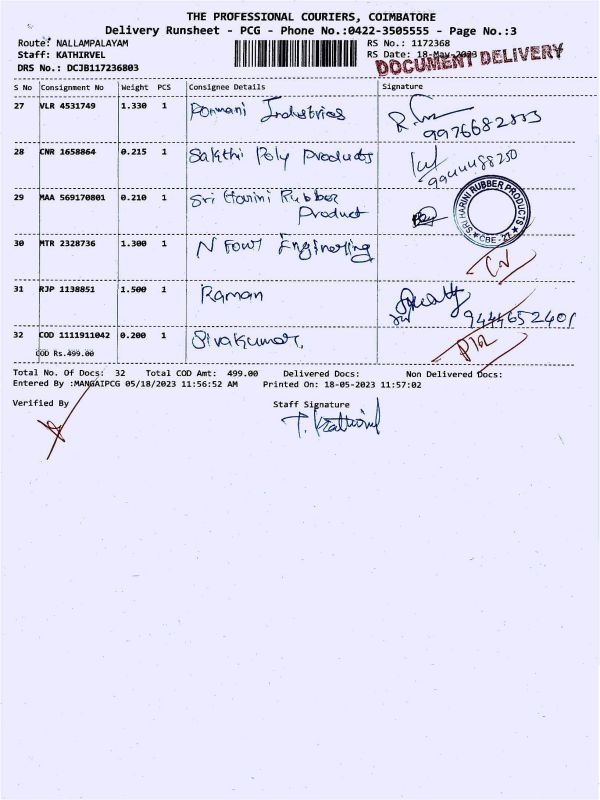 THE PROFESSIONAL COURIERS, COIMBATORE
Delivery Runsheet - PCG - Phone No.:0422-3505555 - Page No.:3
Route: NALLAMPALAYAM RS No.: 1172368
Staff: KATHIRVEL RS Date: 18-May-2023
DOCUMENT DELIVERY
DRS No.: DCJB117236803
S No Consignment No Weight PCS Consignee Details Signature
27 VLR 4531749 1.330 1 Ponmani Industries
9976682
28 CNR 1658864 0.215 1 Sakthi Poly Products
9944488250
29 MAA 569170801 0.210 1 Sri Harini Rubber
Product
SRI HARINI RUBBER PRODUCTS
★ CBE - 27 ★
30 MTR 2328736 1.300 1 N Four Engineering
31 RJP 1138851 1.500 1 Raman
9444652401
32 COD 1111911042 0.200 1 Sivakumar.
COD Rs.499.00
Total No. Of Docs: 32 Total COD Amt: 499.00 Delivered Docs: Non Delivered Docs:
Entered By :MANGAIPCG 05/18/2023 11:56:52 AM Printed On: 18-05-2023 11:57:02
Verified By Staff Signature
T. Kathirvel